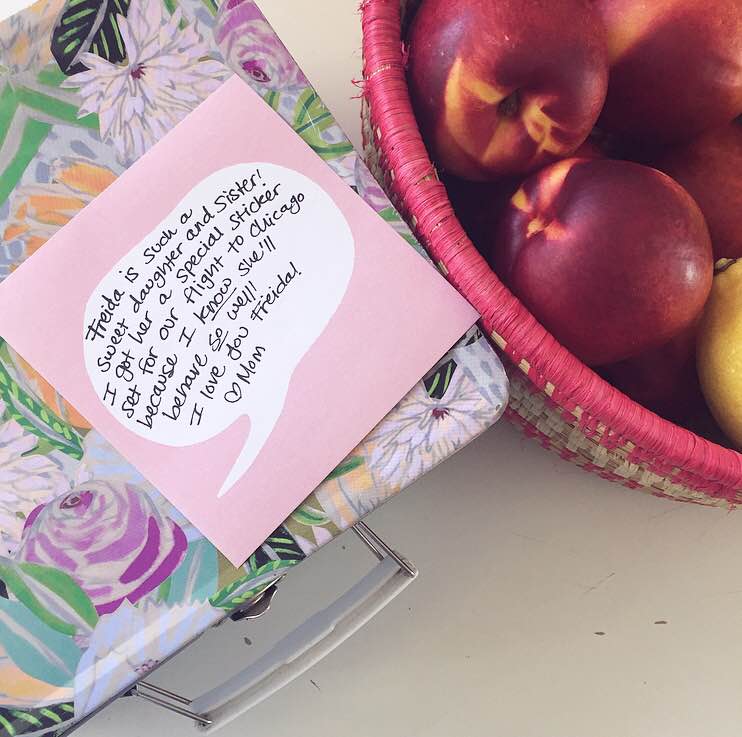 Freida is such a
sweet daughter and sister!
I got her a special sticker
set for our flight to Chicago
because I know she'll
behave so well!
I love you Freida!
♡ Mom